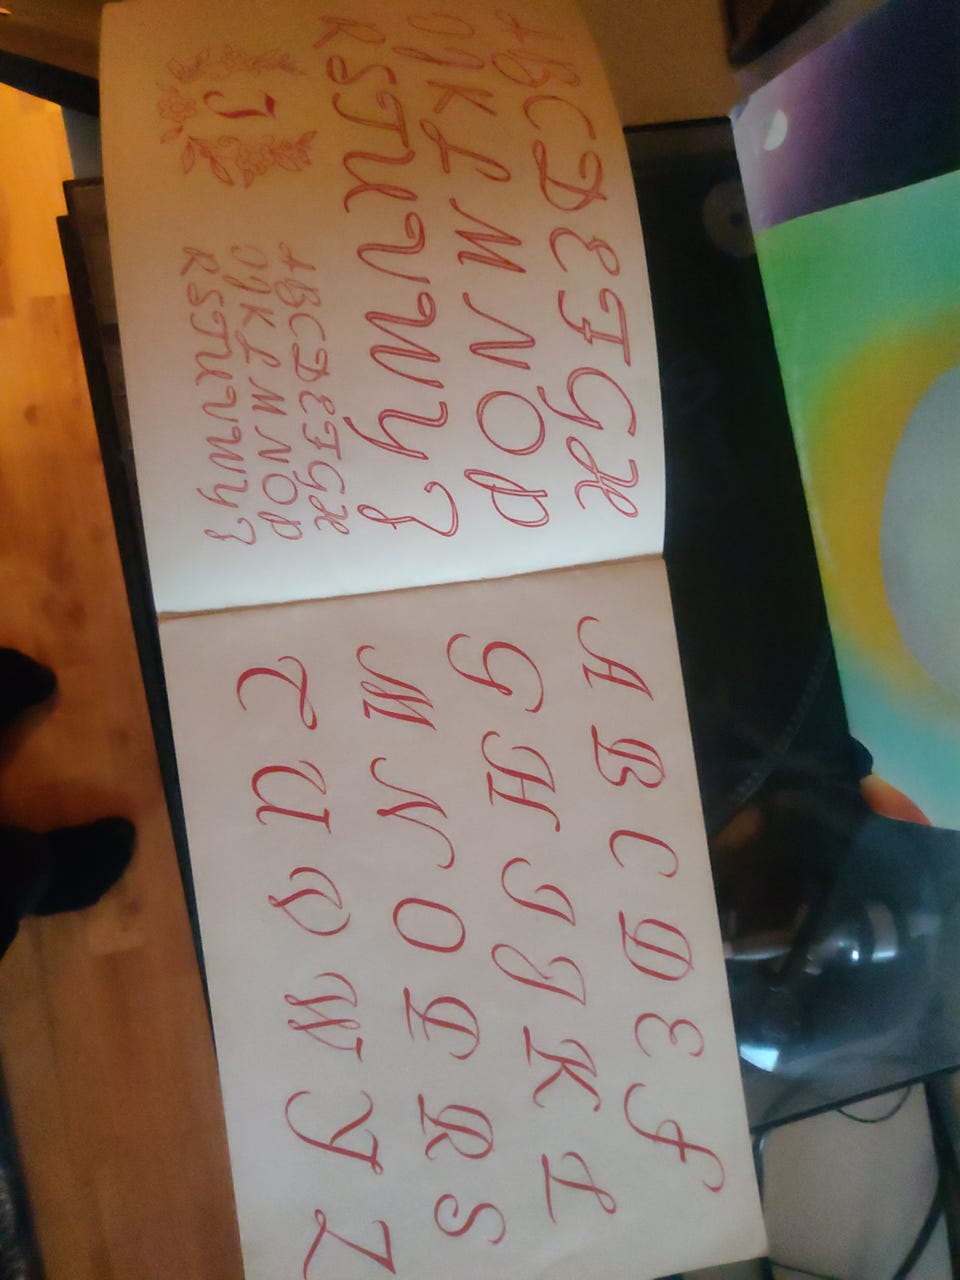 ABCDEFGH
IJKLMNOP
RSTUVWYZ
J
ABCDEFGH
IJKLMNOP
RSTUVWYZ
A B C D E F
G H I J K L
M N O P R S
T U V W Y Z